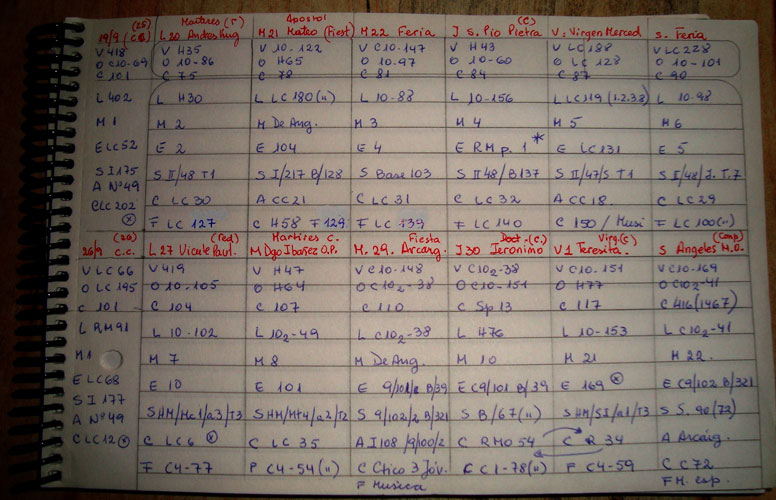 (25) Martires (r) Apostol (C)
19/9 (CB) L 20 Andres King M 21 Mateo (Fiest) M 22 Feria J S. Pio Pietra V: Virgen Merced S. Feria
V 418 V H35 V 10-122 V C10-147 V H43 V LC 188 V LC 228
O C10-69 O 10-86 O H65 O 10-97 O 10-60 O LC 128 O 10-101
C 101 C 75 C 78 C 81 C 84 C 87 C 90
L 402 L H30 L LC 180 (") L 10-88 L 10-156 L LC 119 (1.2.38) L 10-98
M 1 M 2 M De Ang. M 3 M 4 M 5 M 6
E LC52 E 2 E 104 E 4 E RM p. 1 * E LC131 E 5
S I 175 S II/48 T1 S I/217 B/128 S Base 103 S II 48/B137 S II/47/S T1 S I/48/J. T.7
A Nº49 C LC 30 A CC 21 C LC 31 C LC 32 A CC 18. C LC 29
C LC 202 F LC 127 C H58 F 129 F LC 139 F LC 140 C 150/Musi F LC 100 (")
(26) (red) Martires C. Fiesta Doct-(C.) Virg.(C) (Comp)
26/9 C.C. L 27 Vicule Paul. M Dgo Ibañez O.P. M. 29. Arcang. J 30 Jeronimo V 1 Teresita. S Angeles M.O.
V LC 66 V 419 V H47 V C10-148 V C10₂-38 V C10-151 V C10-169
O LC 195 O 10-105 O H64 O C10₂-38 O C10-151 O H77 O C10₂-41
C 101 C 104 C 107 C 110 C Sp 13 C 117 C H16 (1467)
L RM 91 L 10-102 L 10₂-49 L C10₂-38 L H76 L 10-153 L C10₂-41
M 1 M 7 M 8 M De Ang. M 10 M 21 M 22.
E LC68 E 10 E 101 E 9/101/2 B/39 E C9/101 B/39 E 169 E C9/102 B/321
S I 177 S HM/Mc1/a3/T3 S HM/Mt4/a2/T2 S 9/102/2 B/321 S B/67 (") S HM/SI/a1/T3 S S. 90 (73)
A Nº49 C LC 6 C LC 35 A I108/9/100/2 C RMO 54 C R 34 A Arcáng.
C LC12 F C4-77 P C4-54 (") C Ctico 3 Jóv. C C1-78 (") F C4-59 C C72
F Musica F M. esp.